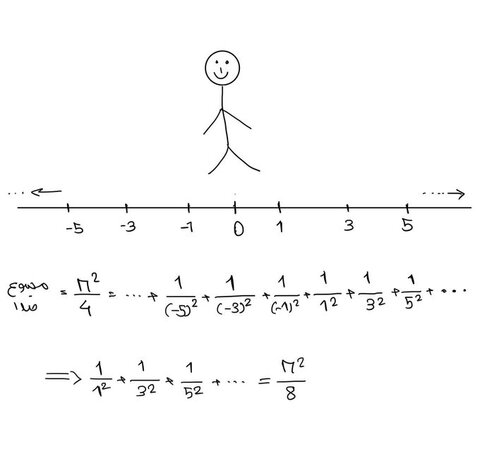 ... ←
....→
-5 -3 -1 0 1 3 5
مجموع صدا = π²/4 = ... + 1/(-5)² + 1/(-3)² + 1/(-1)² + 1/1² + 1/3² + 1/5² + ...
⟹ 1/1² + 1/3² + 1/5² + ... = π²/8